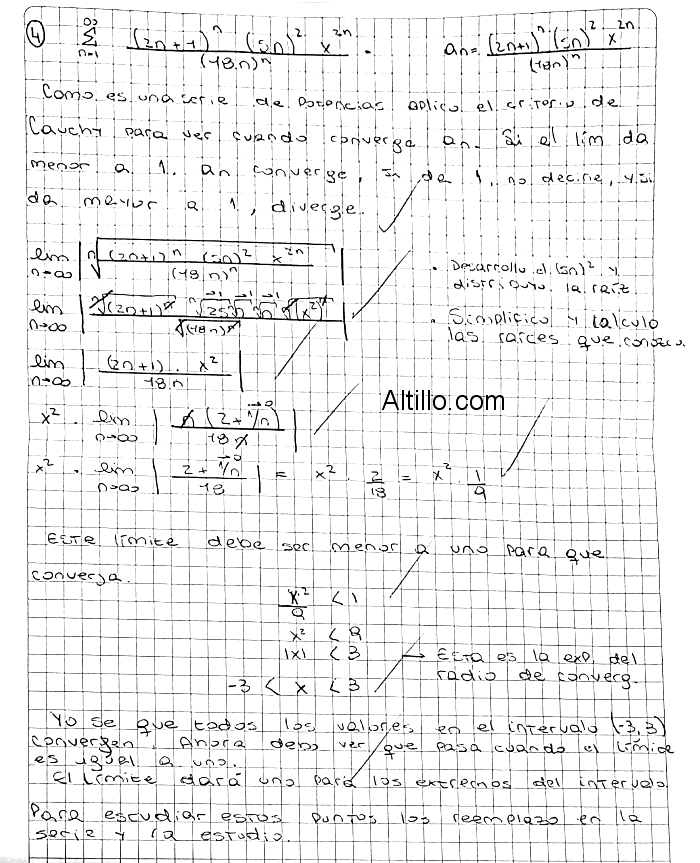 4 ∞ Σ n=1 (2n+1)^n (5n)^2 x^2n / (18.n)^n . an = (2n+1)^n (5n)^2 x^2n / (18n)^n
Como es una serie de potencias aplico el criterio de
Cauchy para ver cuando converge an. Si el lim da
menor a 1. an converge, si da 1, no decide, y si
da mayor a 1, diverge.
lim n→∞ | n√( (2n+1)^n (5n)^2 x^2n / (18.n)^n ) |
• Desarrollo el (5n)^2 y
distribuyo la raíz
lim n→∞ | n√(2n+1)^n n√25 →1 n√n →1 n√n →1 n√(x^2)^n / n√(18n)^n |
• Simplifico y calculo
las raíces que conozco.
lim n→∞ | (2n+1) . x^2 / 18n |
x^2 . lim n→∞ | n (2 + 1/n →0) / 18 n |
Altillo.com
x^2 . lim n→∞ | 2 + 1/n →0 / 18 | = x^2 . 2/18 = x^2 . 1/9
Este límite debe ser menor a uno para que
converja.
x^2/9 < 1
x^2 < 9
|x| < 3 → Esta es la exp. del
radio de converg.
-3 < x < 3
Yo se que todos los valores en el intervalo (-3,3)
convergen. Ahora debo ver que pasa cuando el límite
es igual a uno.
El límite dará uno para los extremos del intervalo.
Para estudiar estos puntos los reemplazo en la
serie y la estudio.